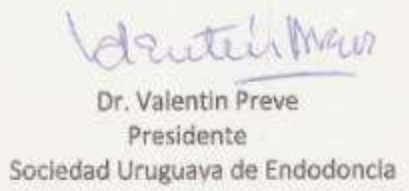 Valentín Preve
Dr. Valentin Preve
Presidente
Sociedad Uruguaya de Endodoncia